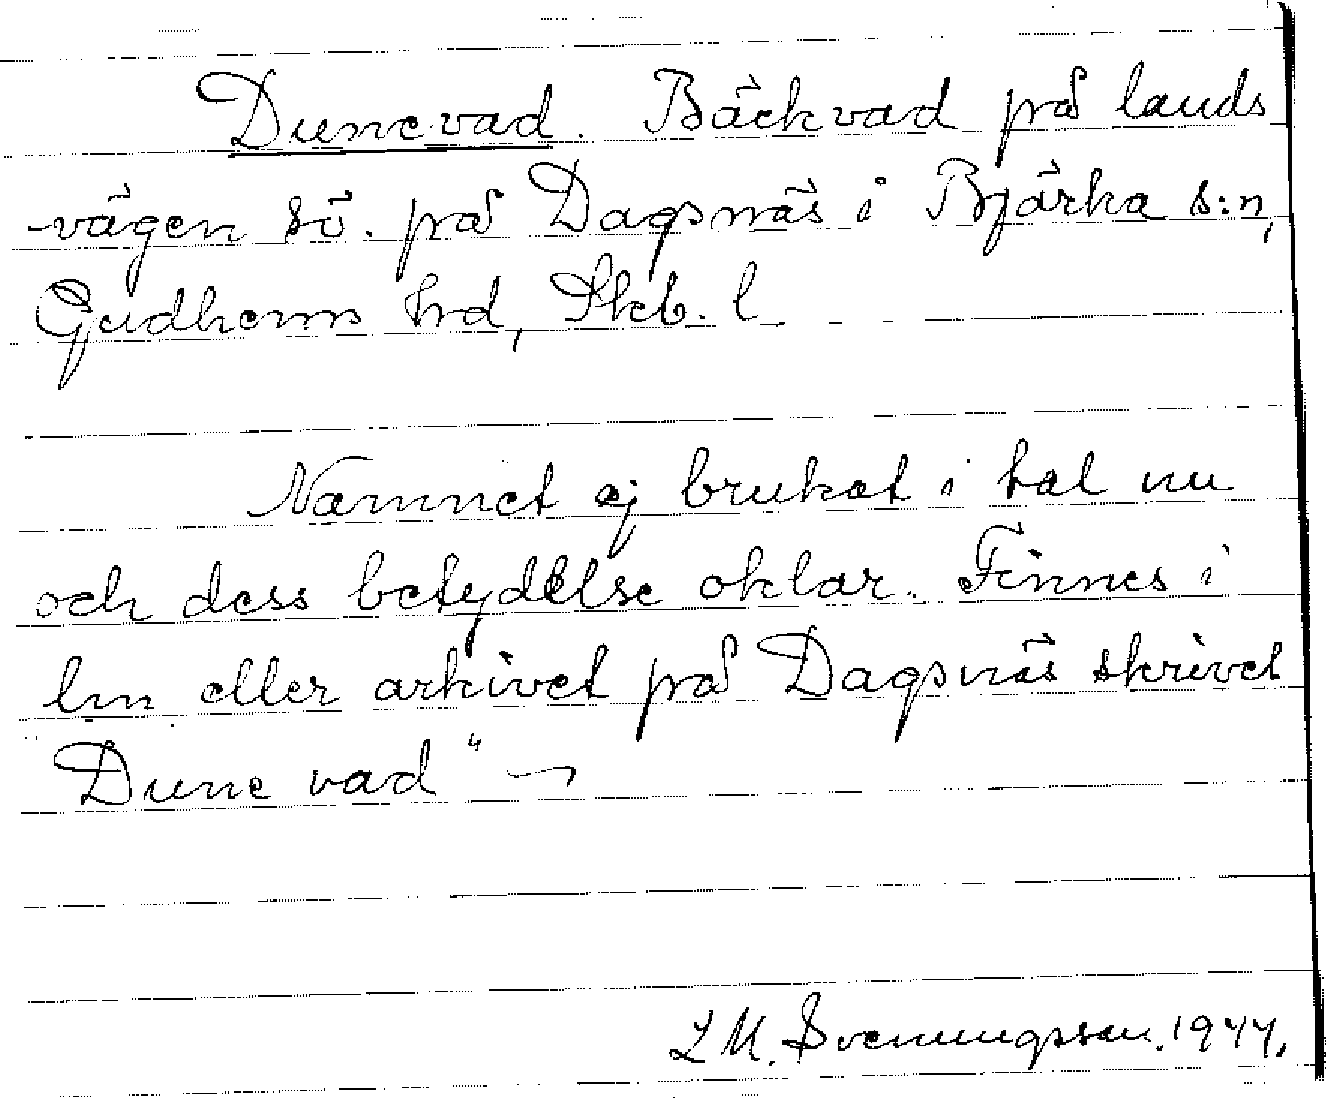 Dunevad. Bäckvad på lands
vägen sö. på Dagsnäs i Bjärka s:n,
Gudhems hrd, Skb. l
Namnet ej brukat i tal nu
och dess betydelse oklar. Finnes i
lm eller arkivet på Dagsnäs skrivet
"Dune vad" ~
L M. Svenungsson. 1944.